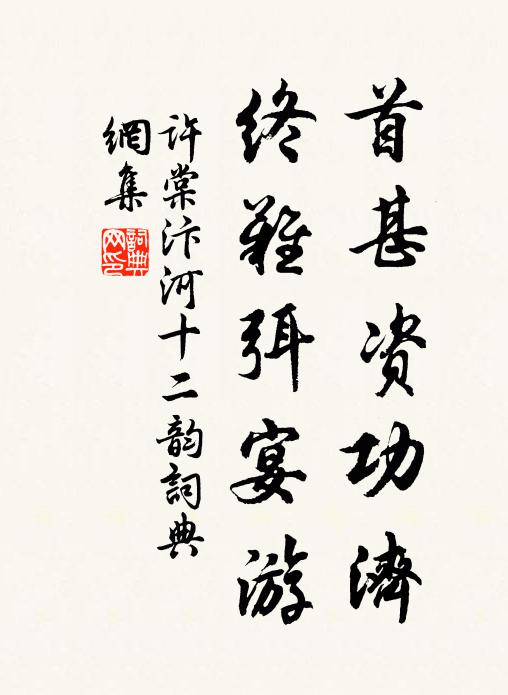 首甚资功濟
终难弭宴游
许棠汴河十二韵詞典
網集
詞典
网印